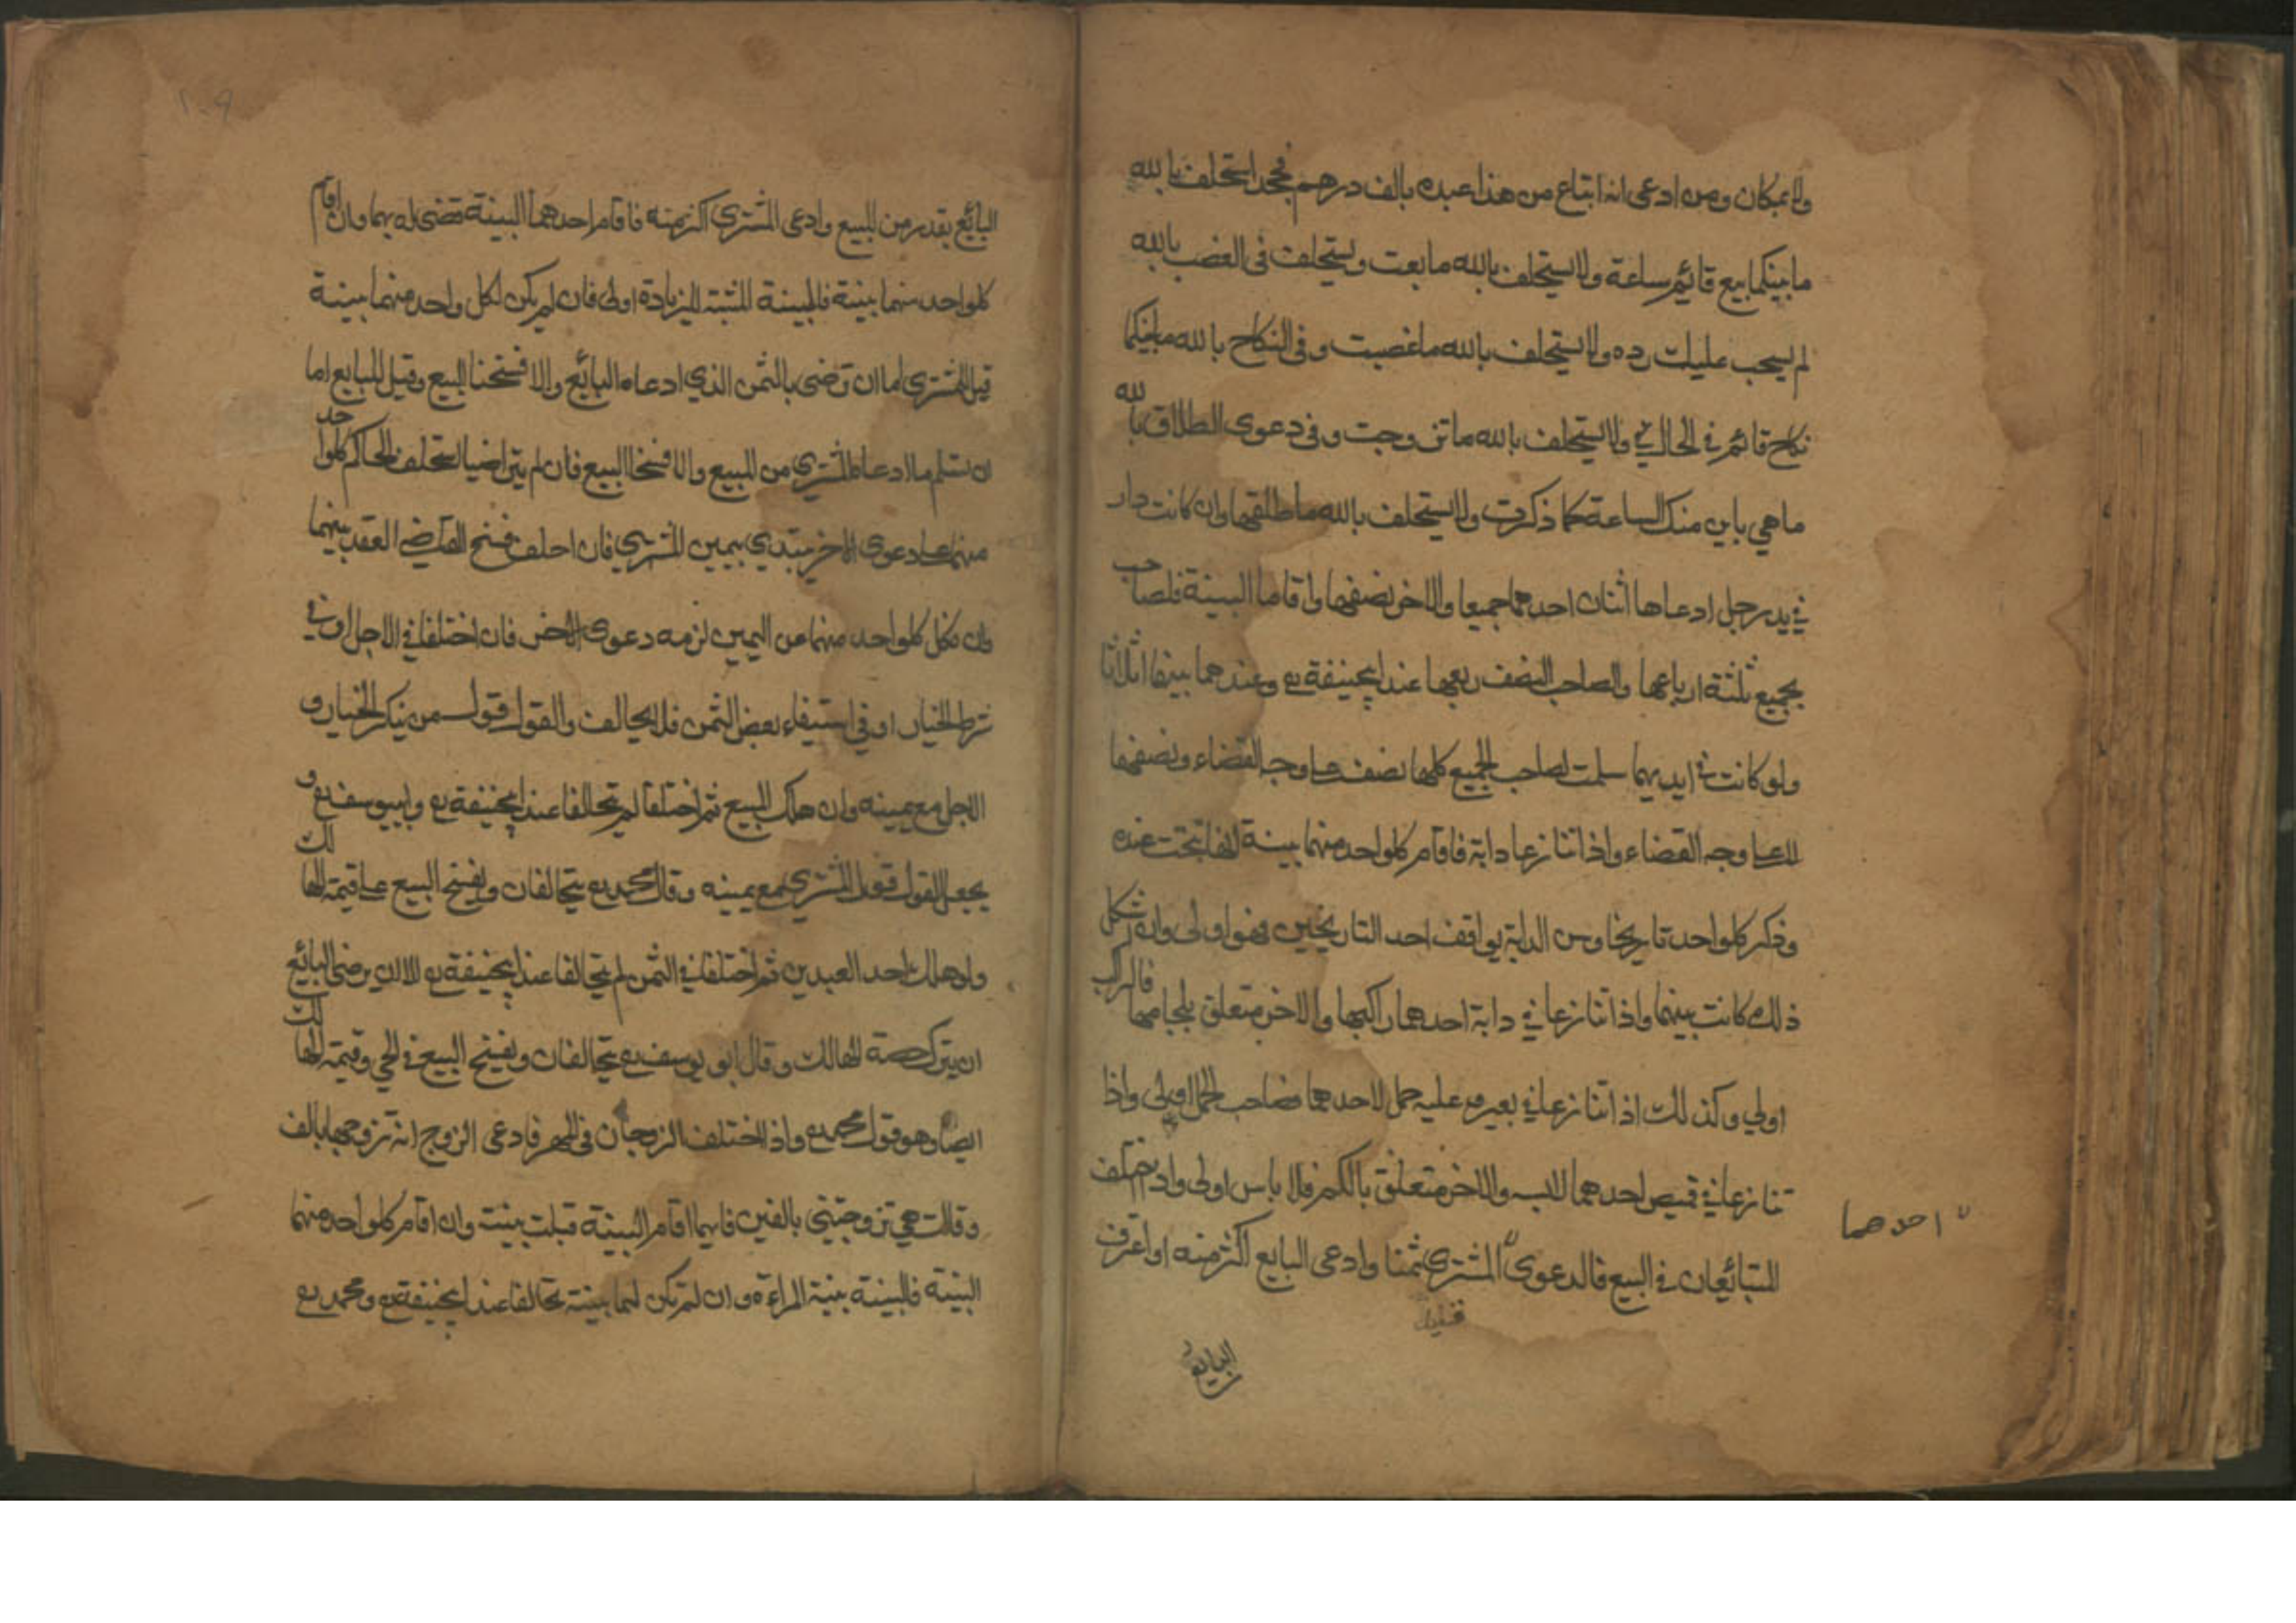 ولا بمكان ومن ادعى انه ابتاع من هذا عبده بالف درهم فجحد استحلف بالله
ما بينكما بيع قائم ساعة ولا يستحلف بالله ما بعت ويستحلف فى الغصب بالله
لم يسحب عليك رده ولا يستحلف بالله ما غصبت وفى النكاح بالله ما بينكما
نكاح قائم في الحال ولا يستحلف بالله ما تزوجت وفى دعوى الطلاق بالله
ما هي باين منك الساعة كما ذكرت ولا يستحلف بالله ما طلقها وان كانت دار
في يد رجل ادعاها اثنان احدهما جميعا والاخر نصفها واقاما البينة فلصاحب
الجميع ثلثة ارباعها ولصاحب النصف ربعها عند ابيحنيفة ره وعندهما بينهما اثلاثا
ولو كانت في ايديهما سلمت لصاحب الجميع كلها نصف على وجه القضاء ونصفها
لا على وجه القضاء واذا تنازعا دابة فاقام كلواحد منهما بينة انها نتجت عنده
وذكر كلواحد تاريخا وسن الدابة يواقف احد التاريخين فهو اولى وان اشكل
ذلك كانت بينهما واذا تنازعا في دابة احدهما راكبها والاخر متعلق بلجامها فالراكب
اولي وكذلك اذا تنازعا في بعير وعليه حمل لاحدهما فصاحب الحمل اولى واذا
تنازعا في قميص احدهما لابسه والاخر متعلق بالكم فلا باس اولى واذ يختلف
المتبائعان في البيع فالدعوى المشترى ثمنا وادعى البايع اكثر منه او اعترف
احدهما
البايع
٢٠٩
البائع بقدر من المبيع وادعى المشترى اكثر منه فاقام احدهما البينة قضى له بها وان اقام
كلواحد منهما بينة فالبينة المثبتة للزيادة اولى فان لم يكن لكل واحد منهما بينة
قيل للمشترى اما ان ترضى بالثمن الذي ادعاه البائع والا فسخنا البيع وقيل للبايع اما
ان تسلم ما ادعاه المشترى من المبيع والا فسخنا البيع فان لم يتراضيا استحلف الحاكم كلواحد
منهما على دعوى الاخر يبتدي بيمين المشتري فان احلف فسخ القاضي العقد بينهما
وان نكل كلواحد منهما عن اليمين لزمه دعوى الاخر فان اختلفا في الاجل او في
شرط الخيار او في استيفاء بعض الثمن فلا يحالف والقول قول من ينكر الخيار و
الاجل مع يمينه وان هلك المبيع ثم اختلفا لم تحالفا عند ابيحنيفة ره وابيوسف ره و
يجعل القول قول المشتري مع يمينه وقال محمد ره يتحالفان ويفسخ البيع على قيمة الهالك
وان هلك احد العبدين ثم اختلفا في الثمن لم يتحالفا عند ابيحنيفة ره الا ان يرضى البائع
ان يترك حصة الهالك وقال ابو يوسف ره يتحالفان ويفسخ البيع في الحي وقيمة الهالك
ايضا وهو قول محمد ره واذا اختلف الزوجان فى المهر فادعى الزوج انه تزوجها بالف
وقالت هي تزوجتني بالفين فايهما اقام البينة قبلت بينته وان اقام كلواحد منهما
البينة فالبينة بينة المراءة وان لم تكن لهما بينة تحالفا عند ابيحنيفة ره ومحمد ره